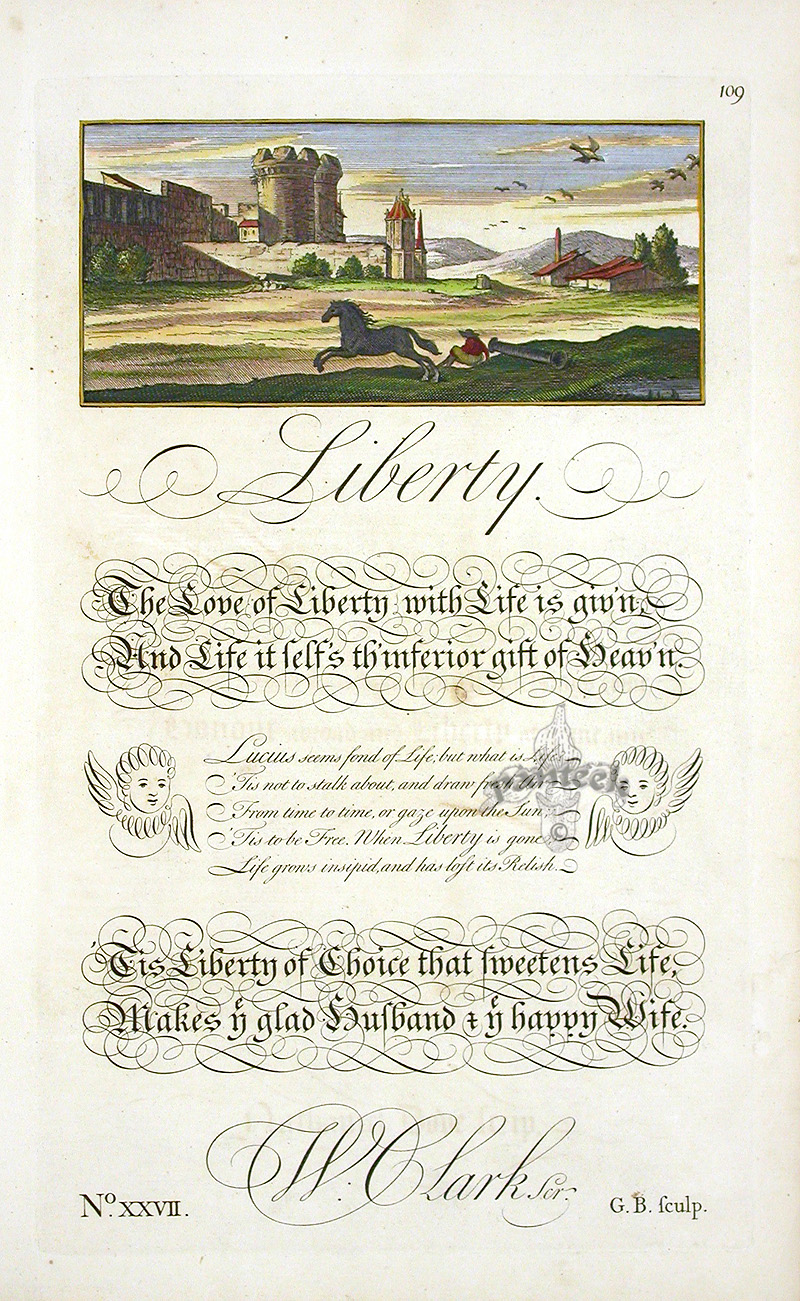 109
Liberty.
The Love of Liberty with Life is giv'n,
And Life it ſelf's th'inferior gift of Heav'n.
Lucius seems fond of Life, but what is Life?
'Tis not to stalk about, and draw fresh Air
From time to time, or gaze upon the Sun;
'Tis to be Free. When Liberty is gone
Life grows insipid, and has lost its Relish.
'Tis Liberty of Choice that ſweetens Life,
Makes yͤ glad Huſband & yͤ happy Wife.
W. Clark Scr.
No. XXVII.
G. B. ſculp.